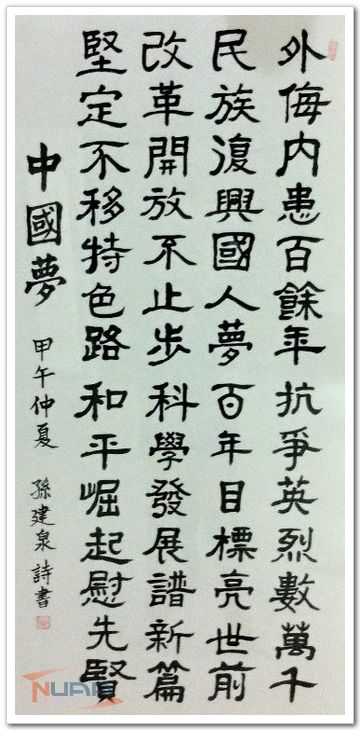 外侮内患百餘年抗爭英烈數萬千
民族復興國人夢百年目標亮世前
改革開放不止步科學發展譜新篇
堅定不移特色路和平崛起慰先賢
中國夢
甲午仲夏 孫建泉詩書